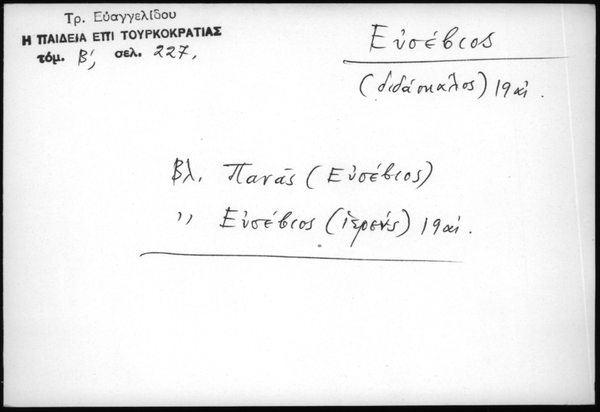 Τρ. Εὐαγγελίδου
Η ΠΑΙΔΕΙΑ ΕΠΙ ΤΟΥΡΚΟΚΡΑΤΙΑΣ
τόμ. Β΄, σελ. 227.
Εὐσέβιος
(διδάσκαλος) 19 αἰ.
Βλ. Πανᾶς (Εὐσέβιος)
,, Εὐσέβιος (ἱερεύς) 19 αἰ.